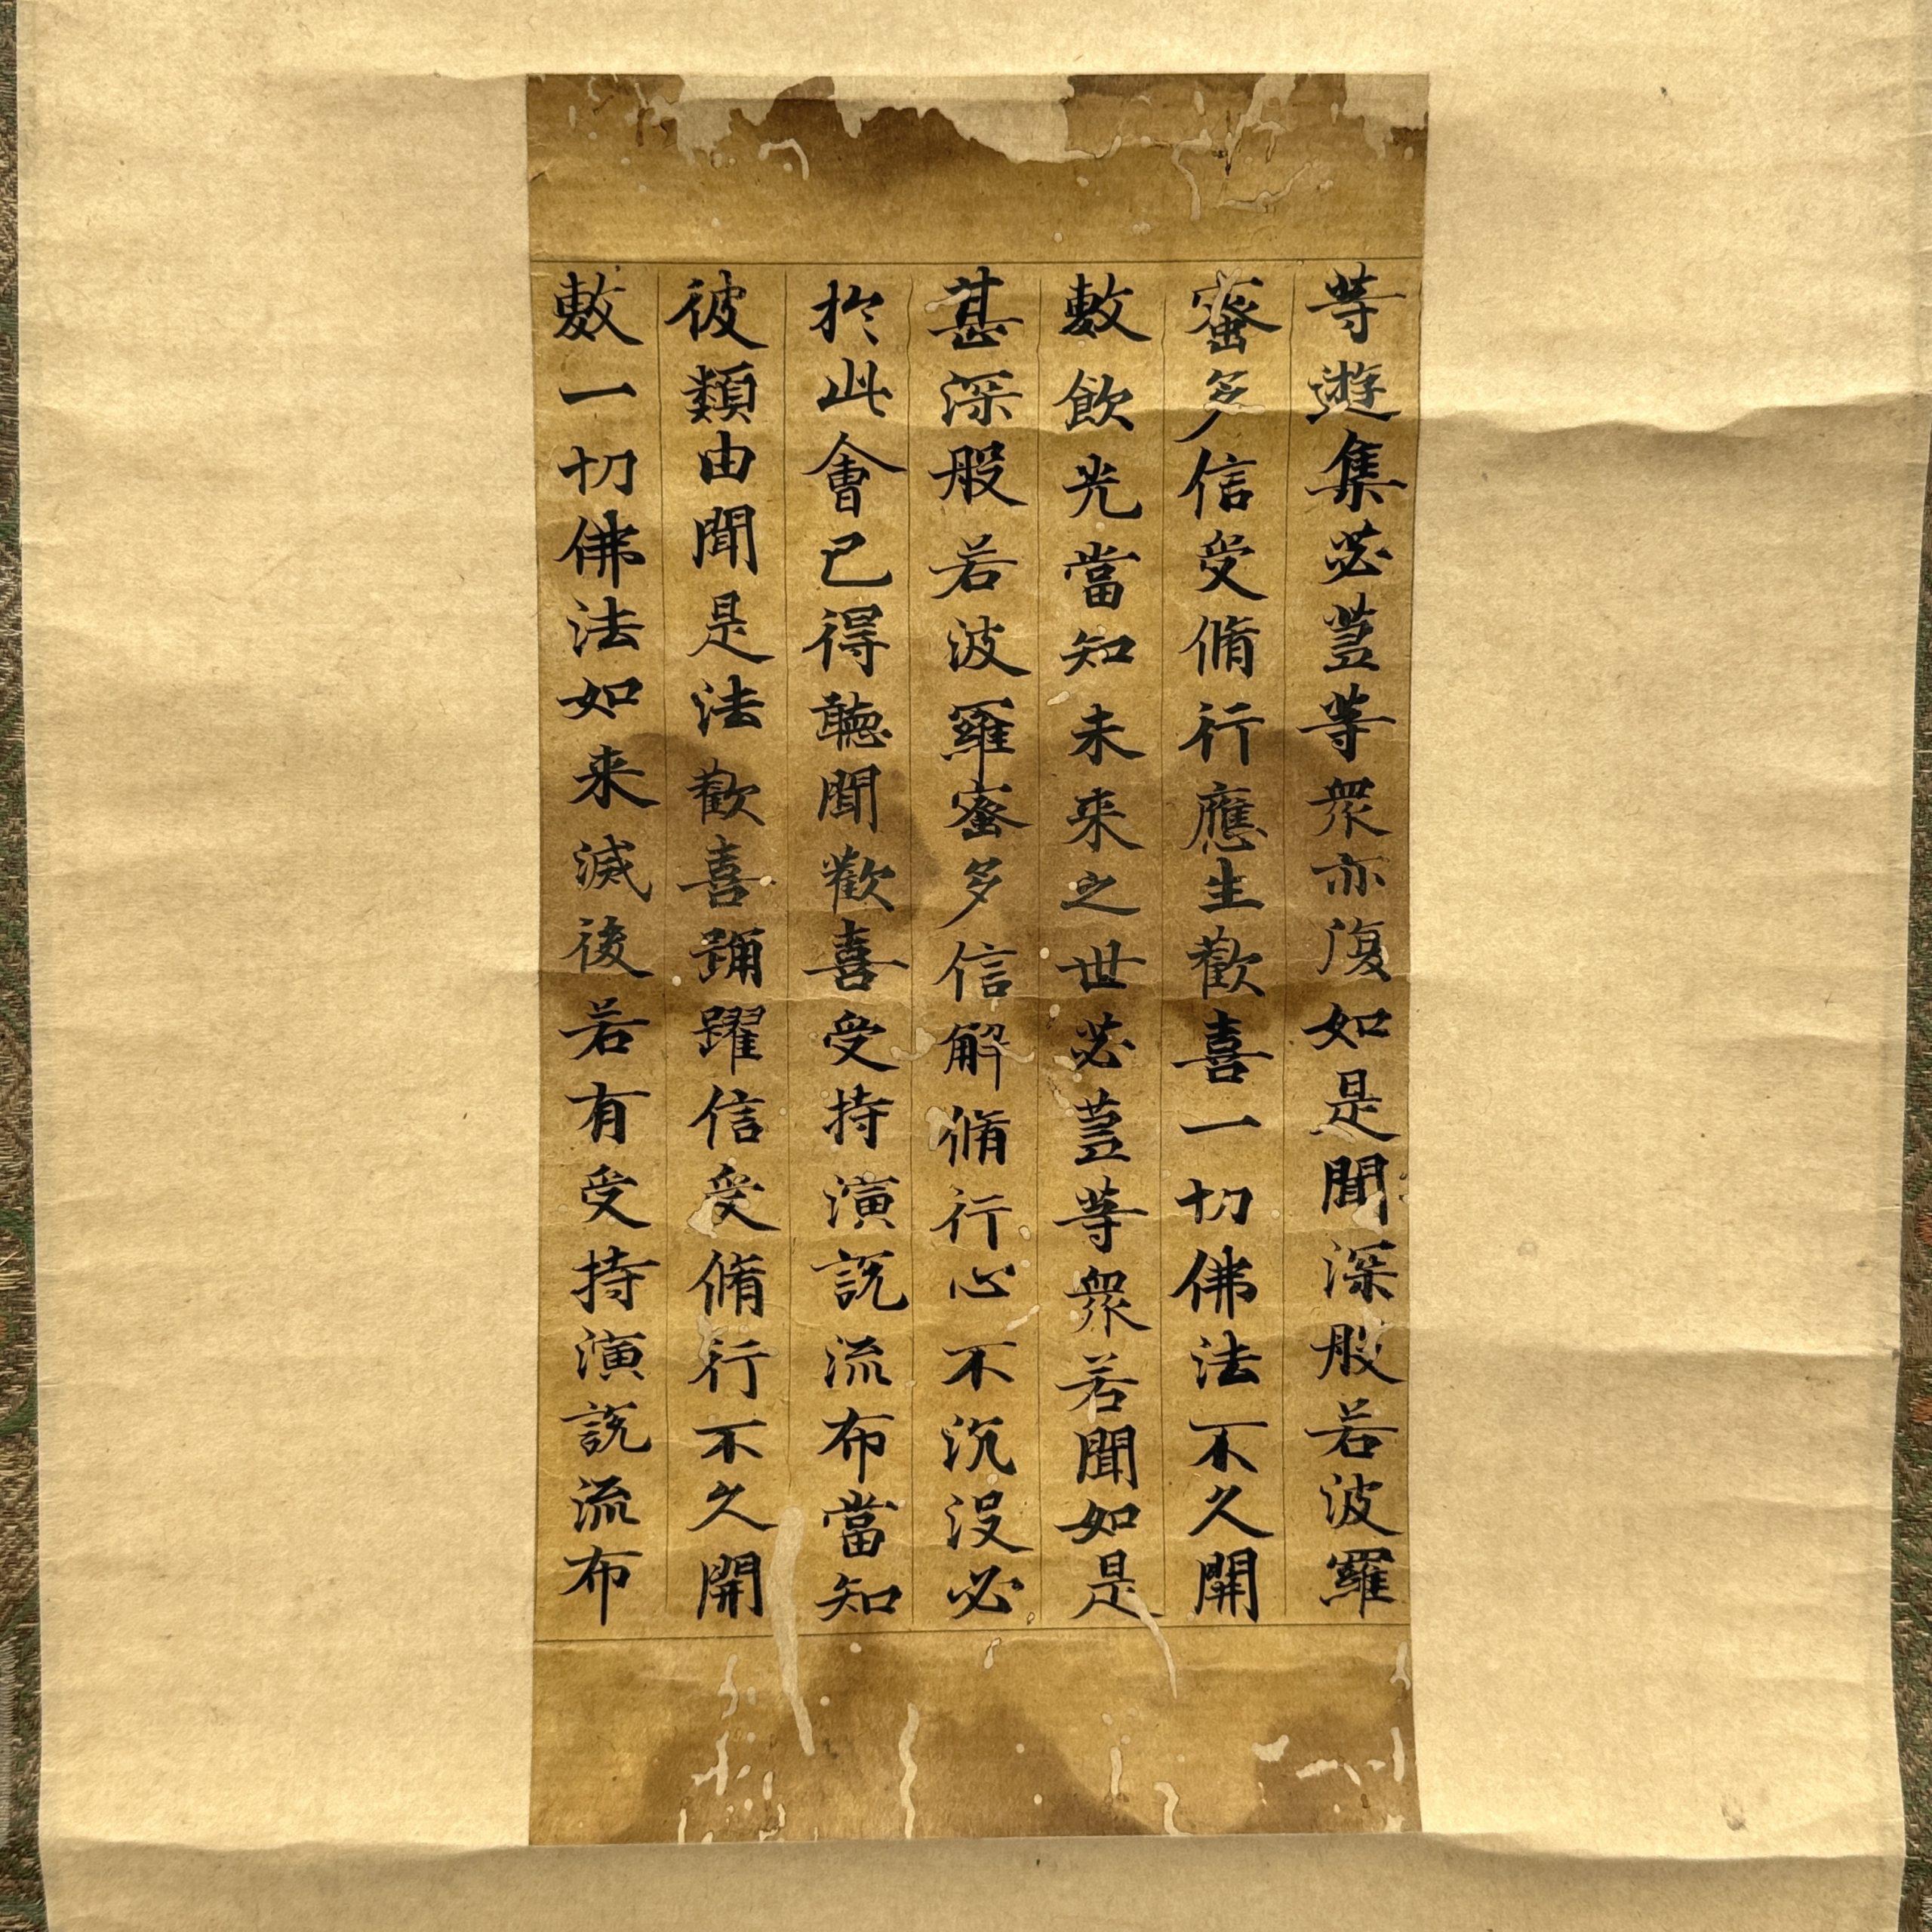 等遊集苾蒭等衆亦復如是聞深般若波羅
蜜多信受脩行應生歡喜一切佛法不久開
敷飲光當知未来之世苾蒭等衆若聞如是
甚深般若波羅蜜多信解脩行心不沉没必
於此會已得聽聞歡喜受持演説流布當知
彼類由聞是法歡喜踊躍信受脩行不久開
敷一切佛法如来滅後若有受持演説流布